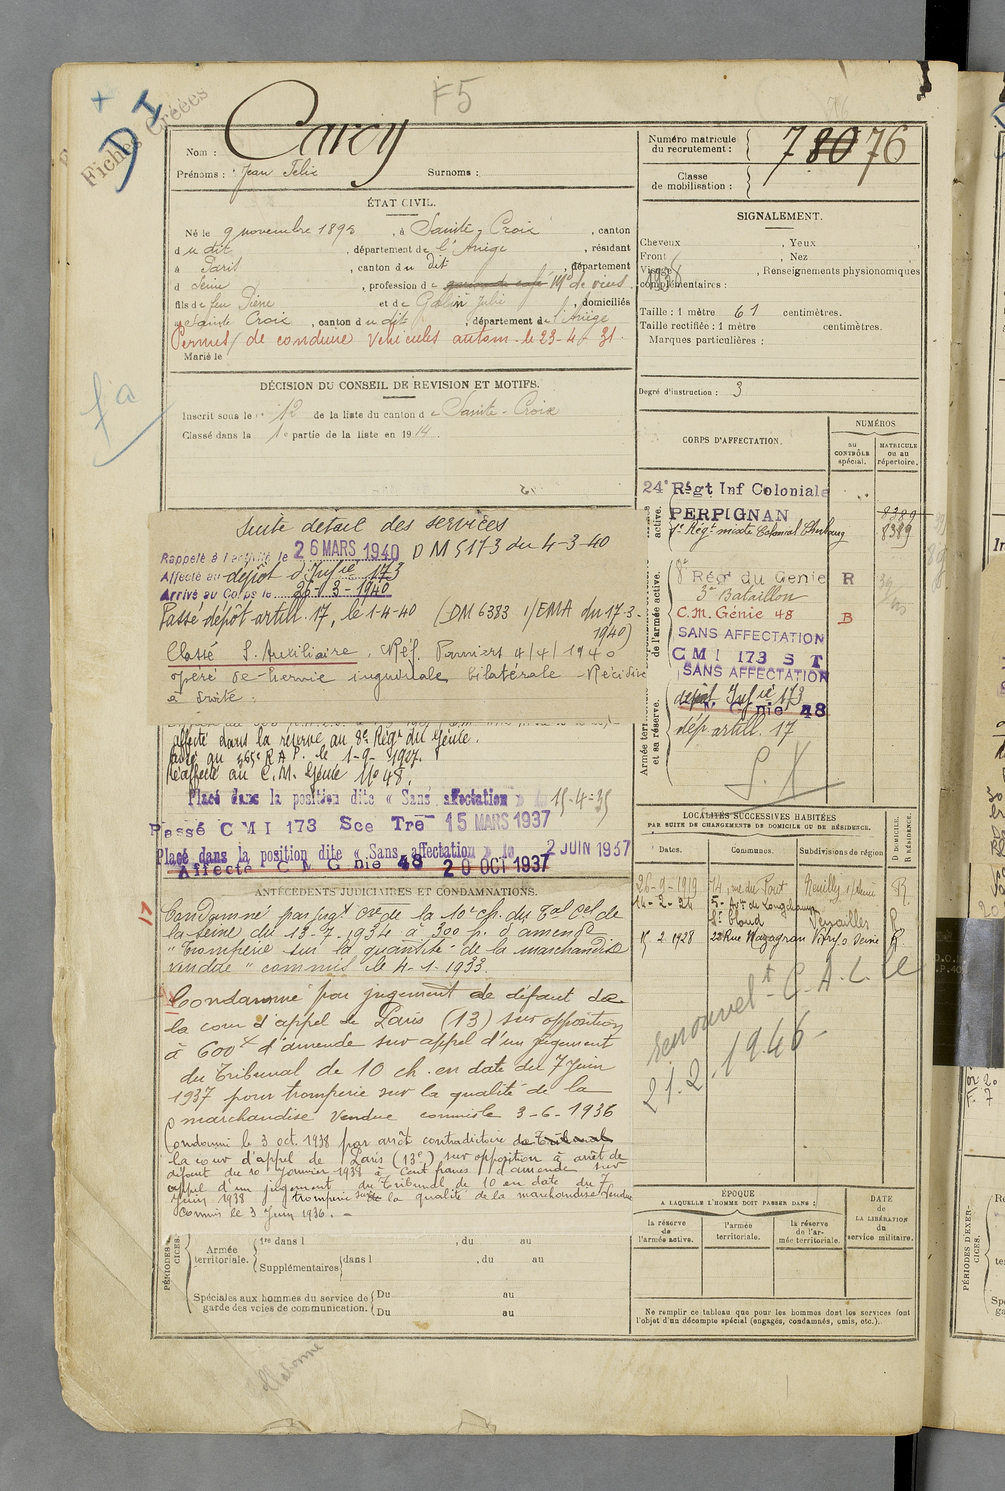 F5
Fiches Créées
DI
Nom : Carcy
Prénoms : Jean Felix Surnoms :
Numéro matricule du recrutement : 7 80 76
Classe de mobilisation :
ÉTAT CIVIL.
Né le 9 novembre 1895, à Sainte-Croix, canton
du dit, département de l'Ariège, résidant
à Paris, canton du dit, département
d Seine, profession de garçon de café Md de vins,
fils de feu Pierre et de Galin Julie, domiciliés
à Sainte Croix, canton du dit, département de l'Ariège
Permis de conduire véhicules autom. le 23-4-31.
Marié le
SIGNALEMENT.
Cheveux , Yeux ,
Front , Nez
Visage , Renseignements physionomiques
complémentaires :
Taille : 1 mètre 61 centimètres.
Taille rectifiée : 1 mètre centimètres.
Marques particulières :
Degré d'instruction : 3
DÉCISION DU CONSEIL DE REVISION ET MOTIFS.
Inscrit sous le n° 12 de la liste du canton de Sainte-Croix
Classé dans la 1e partie de la liste en 1914.
CORPS D'AFFECTATION.
NUMÉROS
au CONTRÔLE spécial.
MATRICULE ou au répertoire.
24e Régt Inf Coloniale
PERPIGNAN 8389
1er Régt mixte Colonial Cherbourg 8389
8e Régt du Genie R
3e Bataillon
C.M. Génie 48 B
SANS AFFECTATION
CMI 173 S T
SANS AFFECTATION
dépôt Infie 173
C M Génie 48
dép. artill. 17
S. X
active.
de l'armée active.
Armée territoriale et sa réserve.
Suite détail des services
Rappelé à l'activité le 26 MARS 1940 DM 5173 du 4-3-40
Affecté au dépôt d'Infie 173
Arrivé au Corps le 26-3-1940
Passé dépôt artill. 17, le 1-4-40 (DM 6383 1/EMA du 17-3-1940)
Classé S. Auxiliaire. Réf. Pamiers 4/4/1940
opéré de hernie inguinale bilatérale - Récidive
à droite.
affecté dans la réserve au 8e Régt du Génie.
Passé au 465e R.A.P. le 1-9-1927.
Réaffecté au C.M. Génie n° 48.
Placé dans la position dite « Sans affectation » 15-4-35
Passé CMI 173 Sce Tre 15 MARS 1937
Placé dans la position dite « Sans affectation » le 2 JUIN 1937
Affecté C M Génie 48 20 OCT 1937
ANTÉCÉDENTS JUDICIAIRES ET CONDAMNATIONS.
Condamné par jugt Cre de la 10e ch. du Tal Cel de
la Seine du 13-7-1934 à 300 f. d'amende
"Tromperie sur la quantité de la marchandise
vendue" commis le 4-1-1933.
Condamné par jugement de défaut de
la cour d'appel de Paris (13) sur opposition
à 600f d'amende sur appel d'un jugement
du Tribunal de 10 ch. en date du 7 Juin
1937 pour tromperie sur la qualité de la
marchandise vendue commis le 3-6-1936
Condamné le 3 oct. 1938 par arrêt contradictoire de Tribunal
la cour d'appel de Paris (13e) sur opposition à arrêt de
défaut du 10 Janvier 1938 à Cent francs d'amende sur
appel d'un jugement du Tribunal de 10 en date du 7
Juin 1938 tromperie sur la qualité de la marchandise vendue
Commis le 3 Juin 1936. -
LOCALITÉS SUCCESSIVES HABITÉES
PAR SUITE DE CHANGEMENTS DE DOMICILE OU DE RÉSIDENCE.
Dates. Communes. Subdivisions de région
D DOMICILE. R RÉSIDENCE.
26-9-1919 14, rue du Pont Neuilly s/Seine R
14-2-24 5 Ave de Longchamp
St Cloud Versailles R
15 2 1928 22 Rue Mazagran Vitry s Seine R
renouvelt C.A.L. le
21.2.1946
PÉRIODES D'EXERCICES.
Armée territoriale.
1re dans l , du au
Supplémentaires dans l , du au
Spéciales aux hommes du service de garde des voies de communication.
Du au
Du au
ÉPOQUE
A LAQUELLE L'HOMME DOIT PASSER DANS :
la réserve de l'armée active.
l'armée territoriale.
la réserve de l'armée territoriale.
DATE DE LA LIBÉRATION du service militaire.
Ne remplir ce tableau que pour les hommes dont les services font
l'objet d'un décompte spécial (engagés, condamnés, omis, etc.).